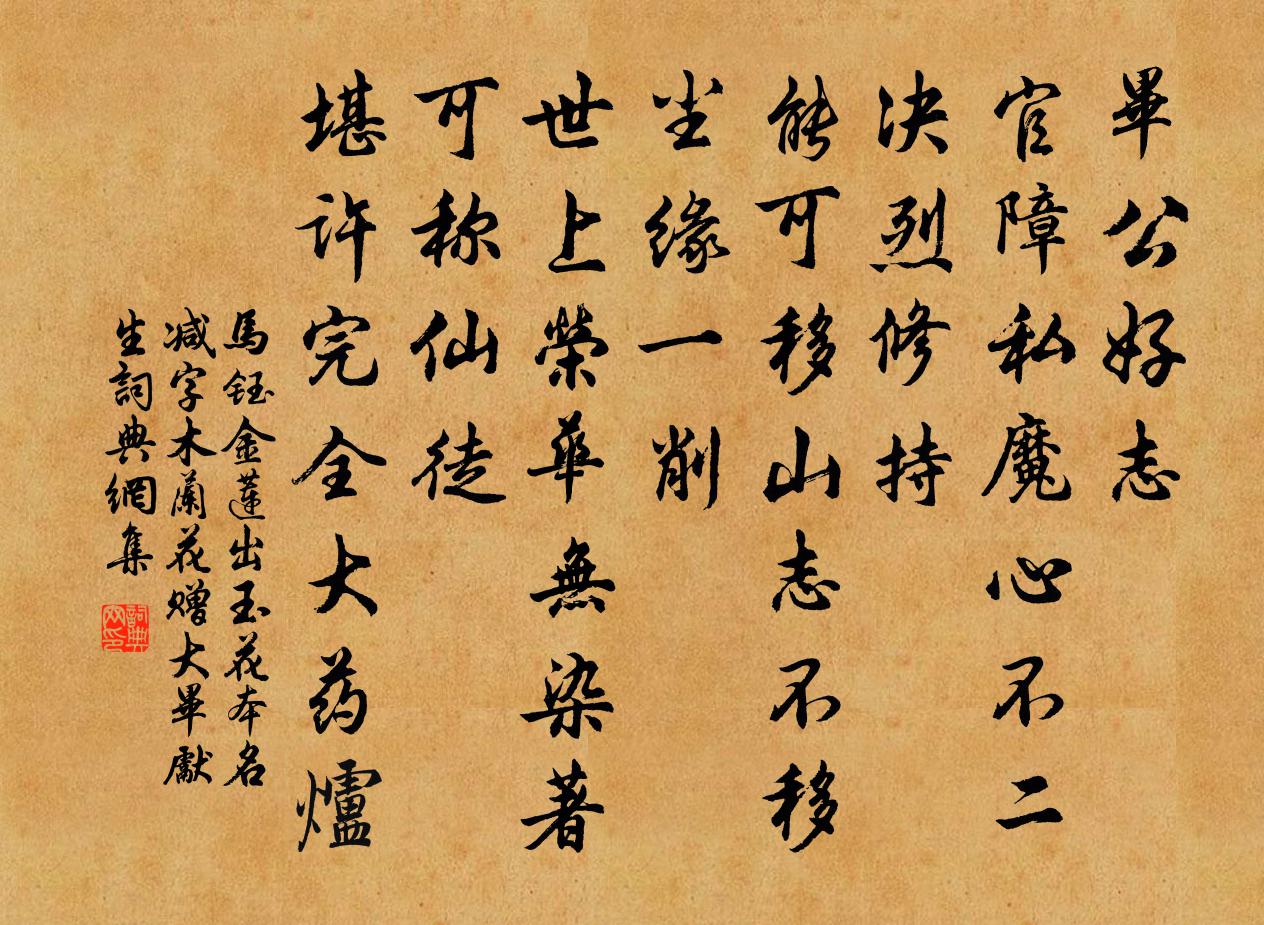 畢公好志
官障私魔心不二
决烈修持
能可移山志不移
尘缘一削
世上榮華無染著
可称仙徒
堪许完全大药爐
馬鈺金蓮出玉花本名
减字木蘭花赠大畢獻
生詞典網集
詞典网印